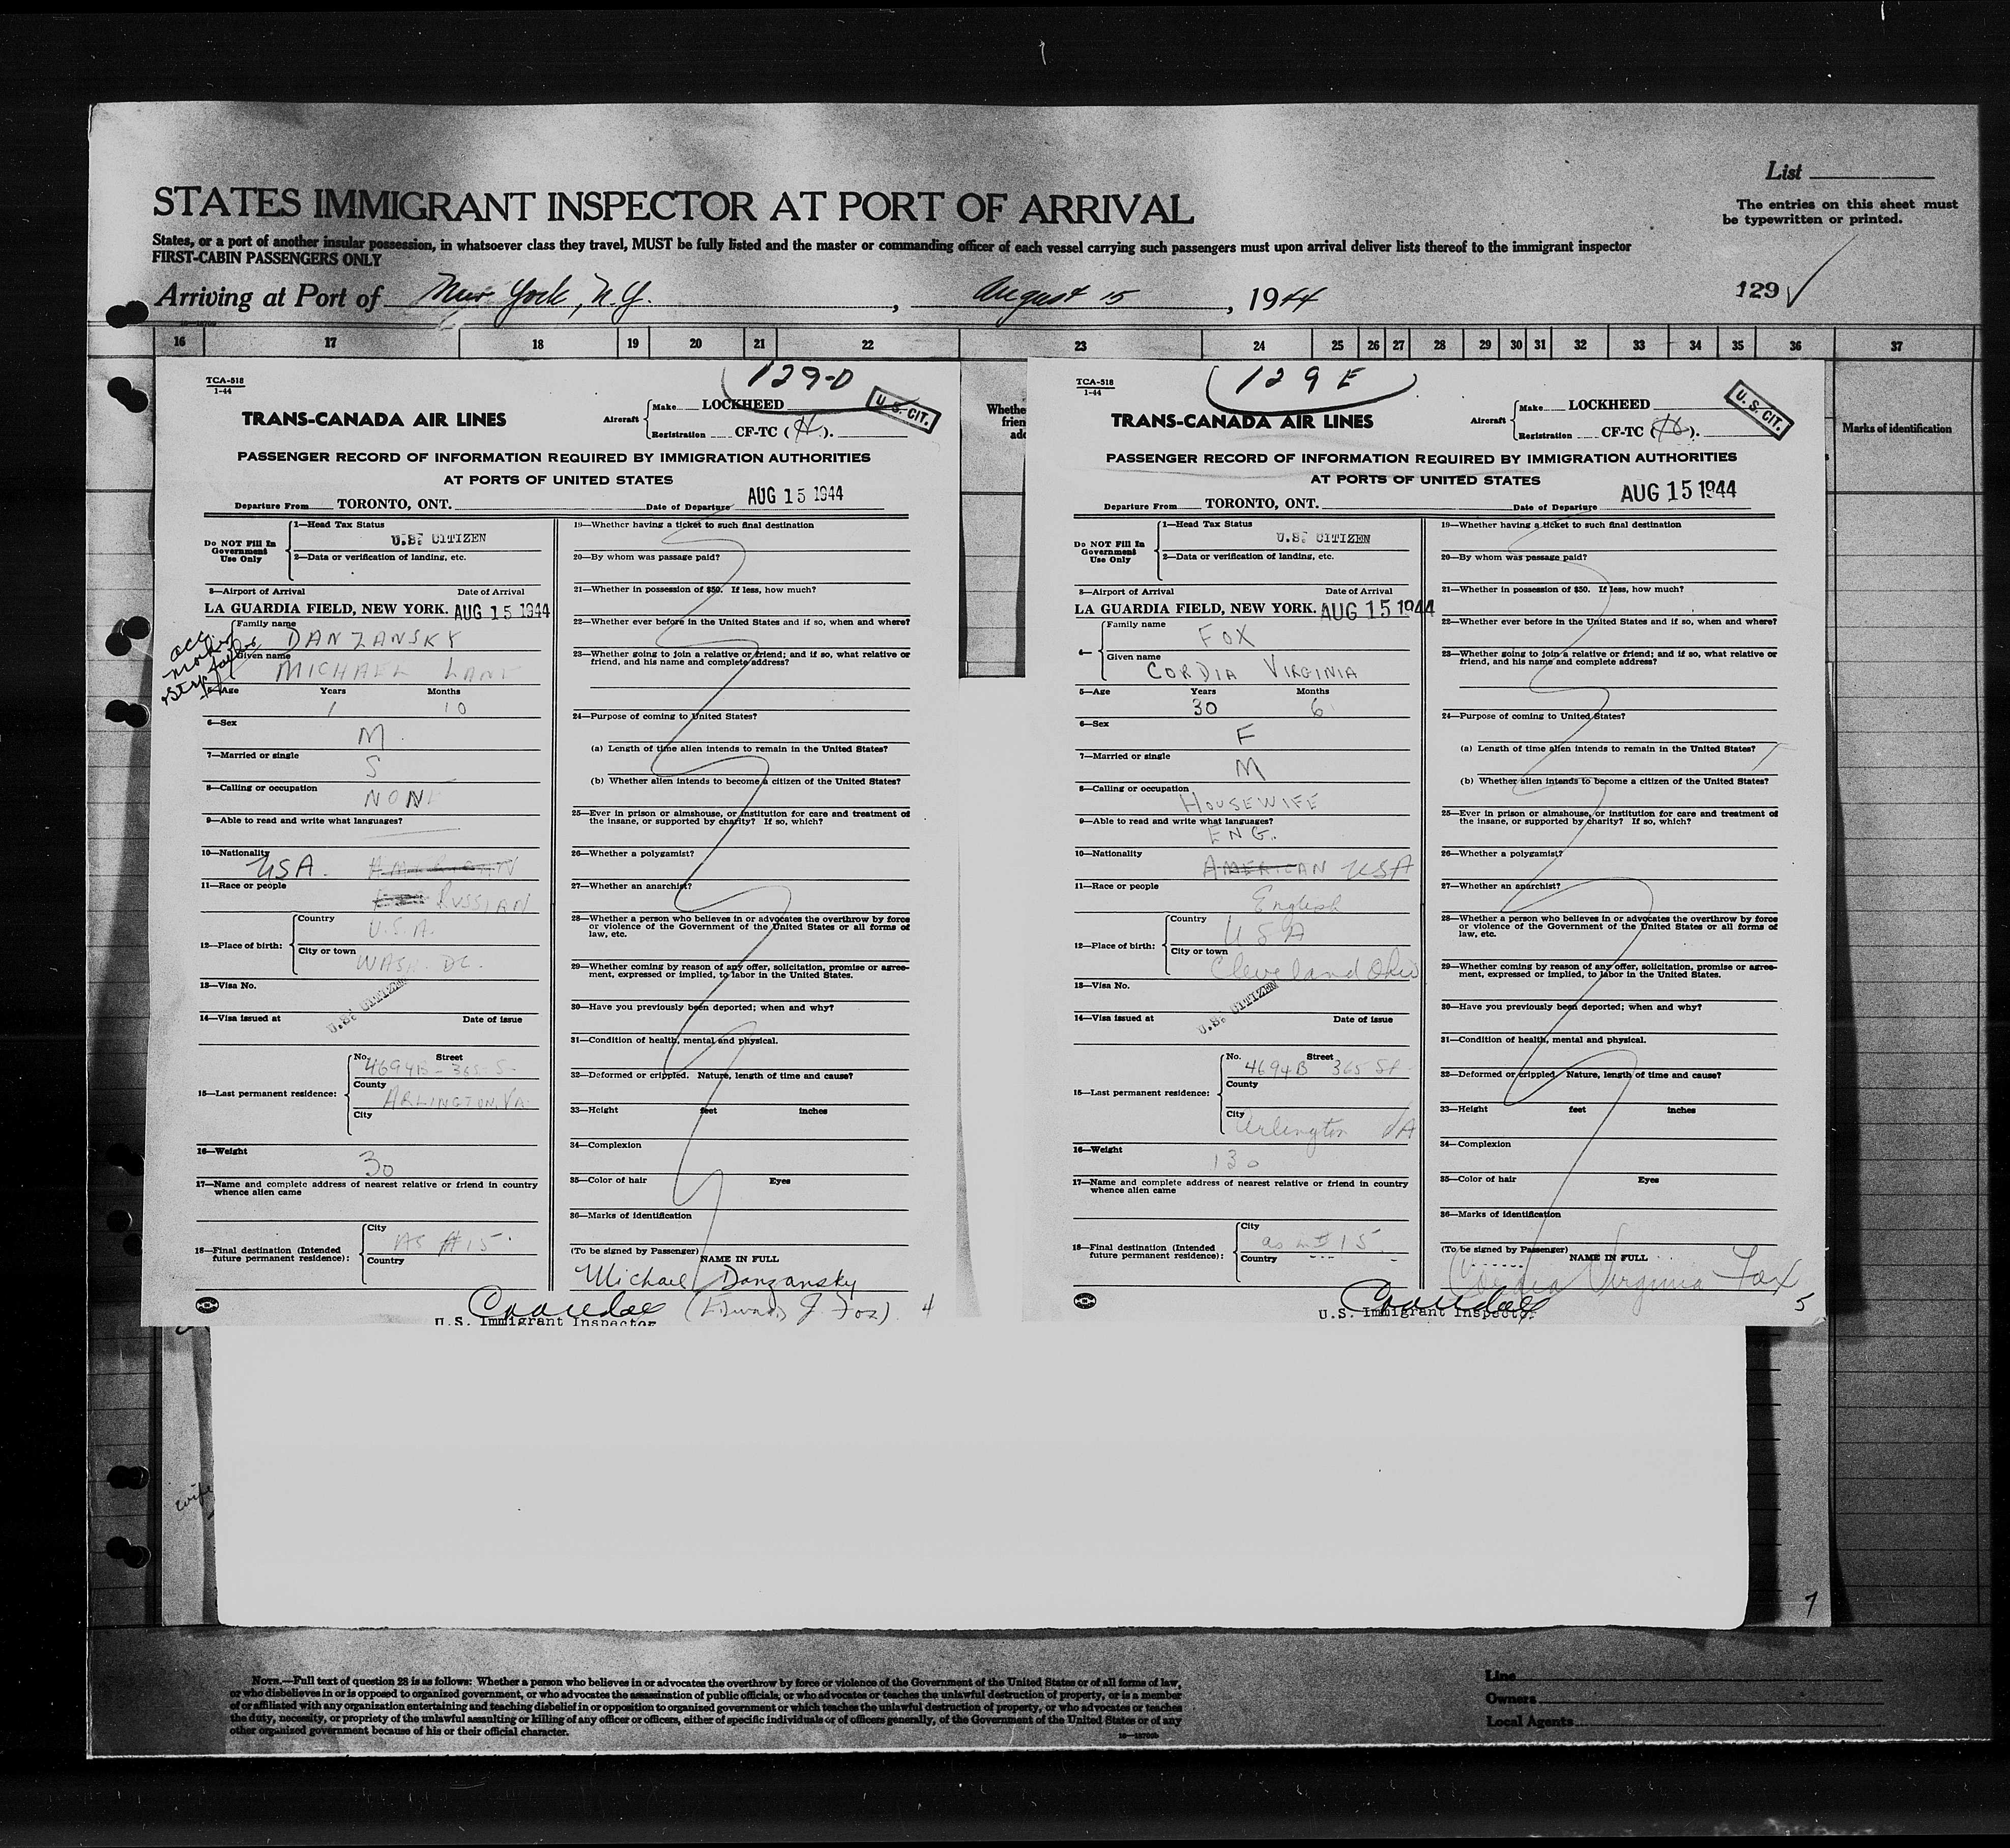 List
STATES IMMIGRANT INSPECTOR AT PORT OF ARRIVAL
The entries on this sheet must
be typewritten or printed.
States, or a port of another insular possession, in whatsoever class they travel, MUST be fully listed and the master or commanding officer of each vessel carrying such passengers must upon arrival deliver lists thereof to the immigrant inspector
FIRST-CABIN PASSENGERS ONLY
Arriving at Port of New York, N.Y., August 15, 1944
129
16 17 18 19 20 21 22 23 24 25 26 27 28 29 30 31 32 33 34 35 36 37
Marks of identification
TCA-518
1-44
129-D
U.S. CIT.
TRANS-CANADA AIR LINES
Aircraft
Make LOCKHEED
Registration CF-TC (H).
PASSENGER RECORD OF INFORMATION REQUIRED BY IMMIGRATION AUTHORITIES
AT PORTS OF UNITED STATES
Departure From TORONTO, ONT. Date of Departure AUG 15 1944
Do NOT Fill In
Government
Use Only
1—Head Tax Status
U.S. CITIZEN
2—Data or verification of landing, etc.
3—Airport of Arrival Date of Arrival
LA GUARDIA FIELD, NEW YORK. AUG 15 1944
Family name
DANZANSKY
acc
mother
step father
Given name
MICHAEL
5—Age Years Months
1 10
6—Sex
M
7—Married or single
S
8—Calling or occupation
NONE
9—Able to read and write what languages?
10—Nationality
USA.
11—Race or people
RUSSIAN
12—Place of birth:
Country
U.S.A.
City or town
WASH. DC.
13—Visa No.
U.S. CITIZEN
14—Visa issued at Date of issue
15—Last permanent residence:
No. Street
4694B - 36
County
ARLINGTON, VA.
City
16—Weight
30
17—Name and complete address of nearest relative or friend in country
whence alien came
18—Final destination (Intended
future permanent residence):
City
AS #15
Country
19—Whether having a ticket to such final destination
20—By whom was passage paid?
21—Whether in possession of $50. If less, how much?
22—Whether ever before in the United States and if so, when and where?
23—Whether going to join a relative or friend; and if so, what relative or
friend, and his name and complete address?
24—Purpose of coming to United States?
(a) Length of time alien intends to remain in the United States?
(b) Whether alien intends to become a citizen of the United States?
25—Ever in prison or almshouse, or institution for care and treatment of
the insane, or supported by charity? If so, which?
26—Whether a polygamist?
27—Whether an anarchist?
28—Whether a person who believes in or advocates the overthrow by force
or violence of the Government of the United States or all forms of
law, etc.
29—Whether coming by reason of any offer, solicitation, promise or agree-
ment, expressed or implied, to labor in the United States.
30—Have you previously been deported; when and why?
31—Condition of health, mental and physical.
32—Deformed or crippled. Nature, length of time and cause?
33—Height feet inches
34—Complexion
35—Color of hair Eyes
36—Marks of identification
(To be signed by Passenger) NAME IN FULL
Michael Danzansky
(Edward J. Fox). 4
U.S. Immigrant Inspector
TCA-518
1-44
129 E
U.S. CIT.
TRANS-CANADA AIR LINES
Aircraft
Make LOCKHEED
Registration CF-TC (H).
PASSENGER RECORD OF INFORMATION REQUIRED BY IMMIGRATION AUTHORITIES
AT PORTS OF UNITED STATES
Departure From TORONTO, ONT. Date of Departure AUG 15 1944
Do NOT Fill In
Government
Use Only
1—Head Tax Status
U.S. CITIZEN
2—Data or verification of landing, etc.
3—Airport of Arrival Date of Arrival
LA GUARDIA FIELD, NEW YORK. AUG 15 1944
4—
Family name
FOX
Given name
CORDIA VIRGINIA
5—Age Years Months
30 6
6—Sex
F
7—Married or single
M
8—Calling or occupation
HOUSEWIFE
9—Able to read and write what languages?
ENG.
10—Nationality
AMERICAN USA
11—Race or people
English
12—Place of birth:
Country
USA
City or town
Cleveland Ohio
13—Visa No.
U.S. CITIZEN
14—Visa issued at Date of issue
15—Last permanent residence:
No. Street
4694B 36 St
County
City
Arlington VA
16—Weight
130
17—Name and complete address of nearest relative or friend in country
whence alien came
18—Final destination (Intended
future permanent residence):
City
as in #15
Country
19—Whether having a ticket to such final destination
20—By whom was passage paid?
21—Whether in possession of $50. If less, how much?
22—Whether ever before in the United States and if so, when and where?
23—Whether going to join a relative or friend; and if so, what relative or
friend, and his name and complete address?
24—Purpose of coming to United States?
(a) Length of time alien intends to remain in the United States?
(b) Whether alien intends to become a citizen of the United States?
25—Ever in prison or almshouse, or institution for care and treatment of
the insane, or supported by charity? If so, which?
26—Whether a polygamist?
27—Whether an anarchist?
28—Whether a person who believes in or advocates the overthrow by force
or violence of the Government of the United States or all forms of
law, etc.
29—Whether coming by reason of any offer, solicitation, promise or agree-
ment, expressed or implied, to labor in the United States.
30—Have you previously been deported; when and why?
31—Condition of health, mental and physical.
32—Deformed or crippled. Nature, length of time and cause?
33—Height feet inches
34—Complexion
35—Color of hair Eyes
36—Marks of identification
(To be signed by Passenger) NAME IN FULL
Cordia Virginia Fox 5
U.S. Immigrant Inspector
wife
7
NOTE.—Full text of question 28 is as follows: Whether a person who believes in or advocates the overthrow by force or violence of the Government of the United States or of all forms of law,
or who disbelieves in or is opposed to organized government, or who advocates the assassination of public officials, or who advocates or teaches the unlawful destruction of property, or is a member
of or affiliated with any organization entertaining and teaching disbelief in or opposition to organized government or which teaches the unlawful destruction of property, or who advocates or teaches
the duty, necessity, or propriety of the unlawful assaulting or killing of any officer or officers, either of specific individuals or of officers generally, of the Government of the United States or of any
other organized government because of his or their official character.
Line
Owners
Local Agents